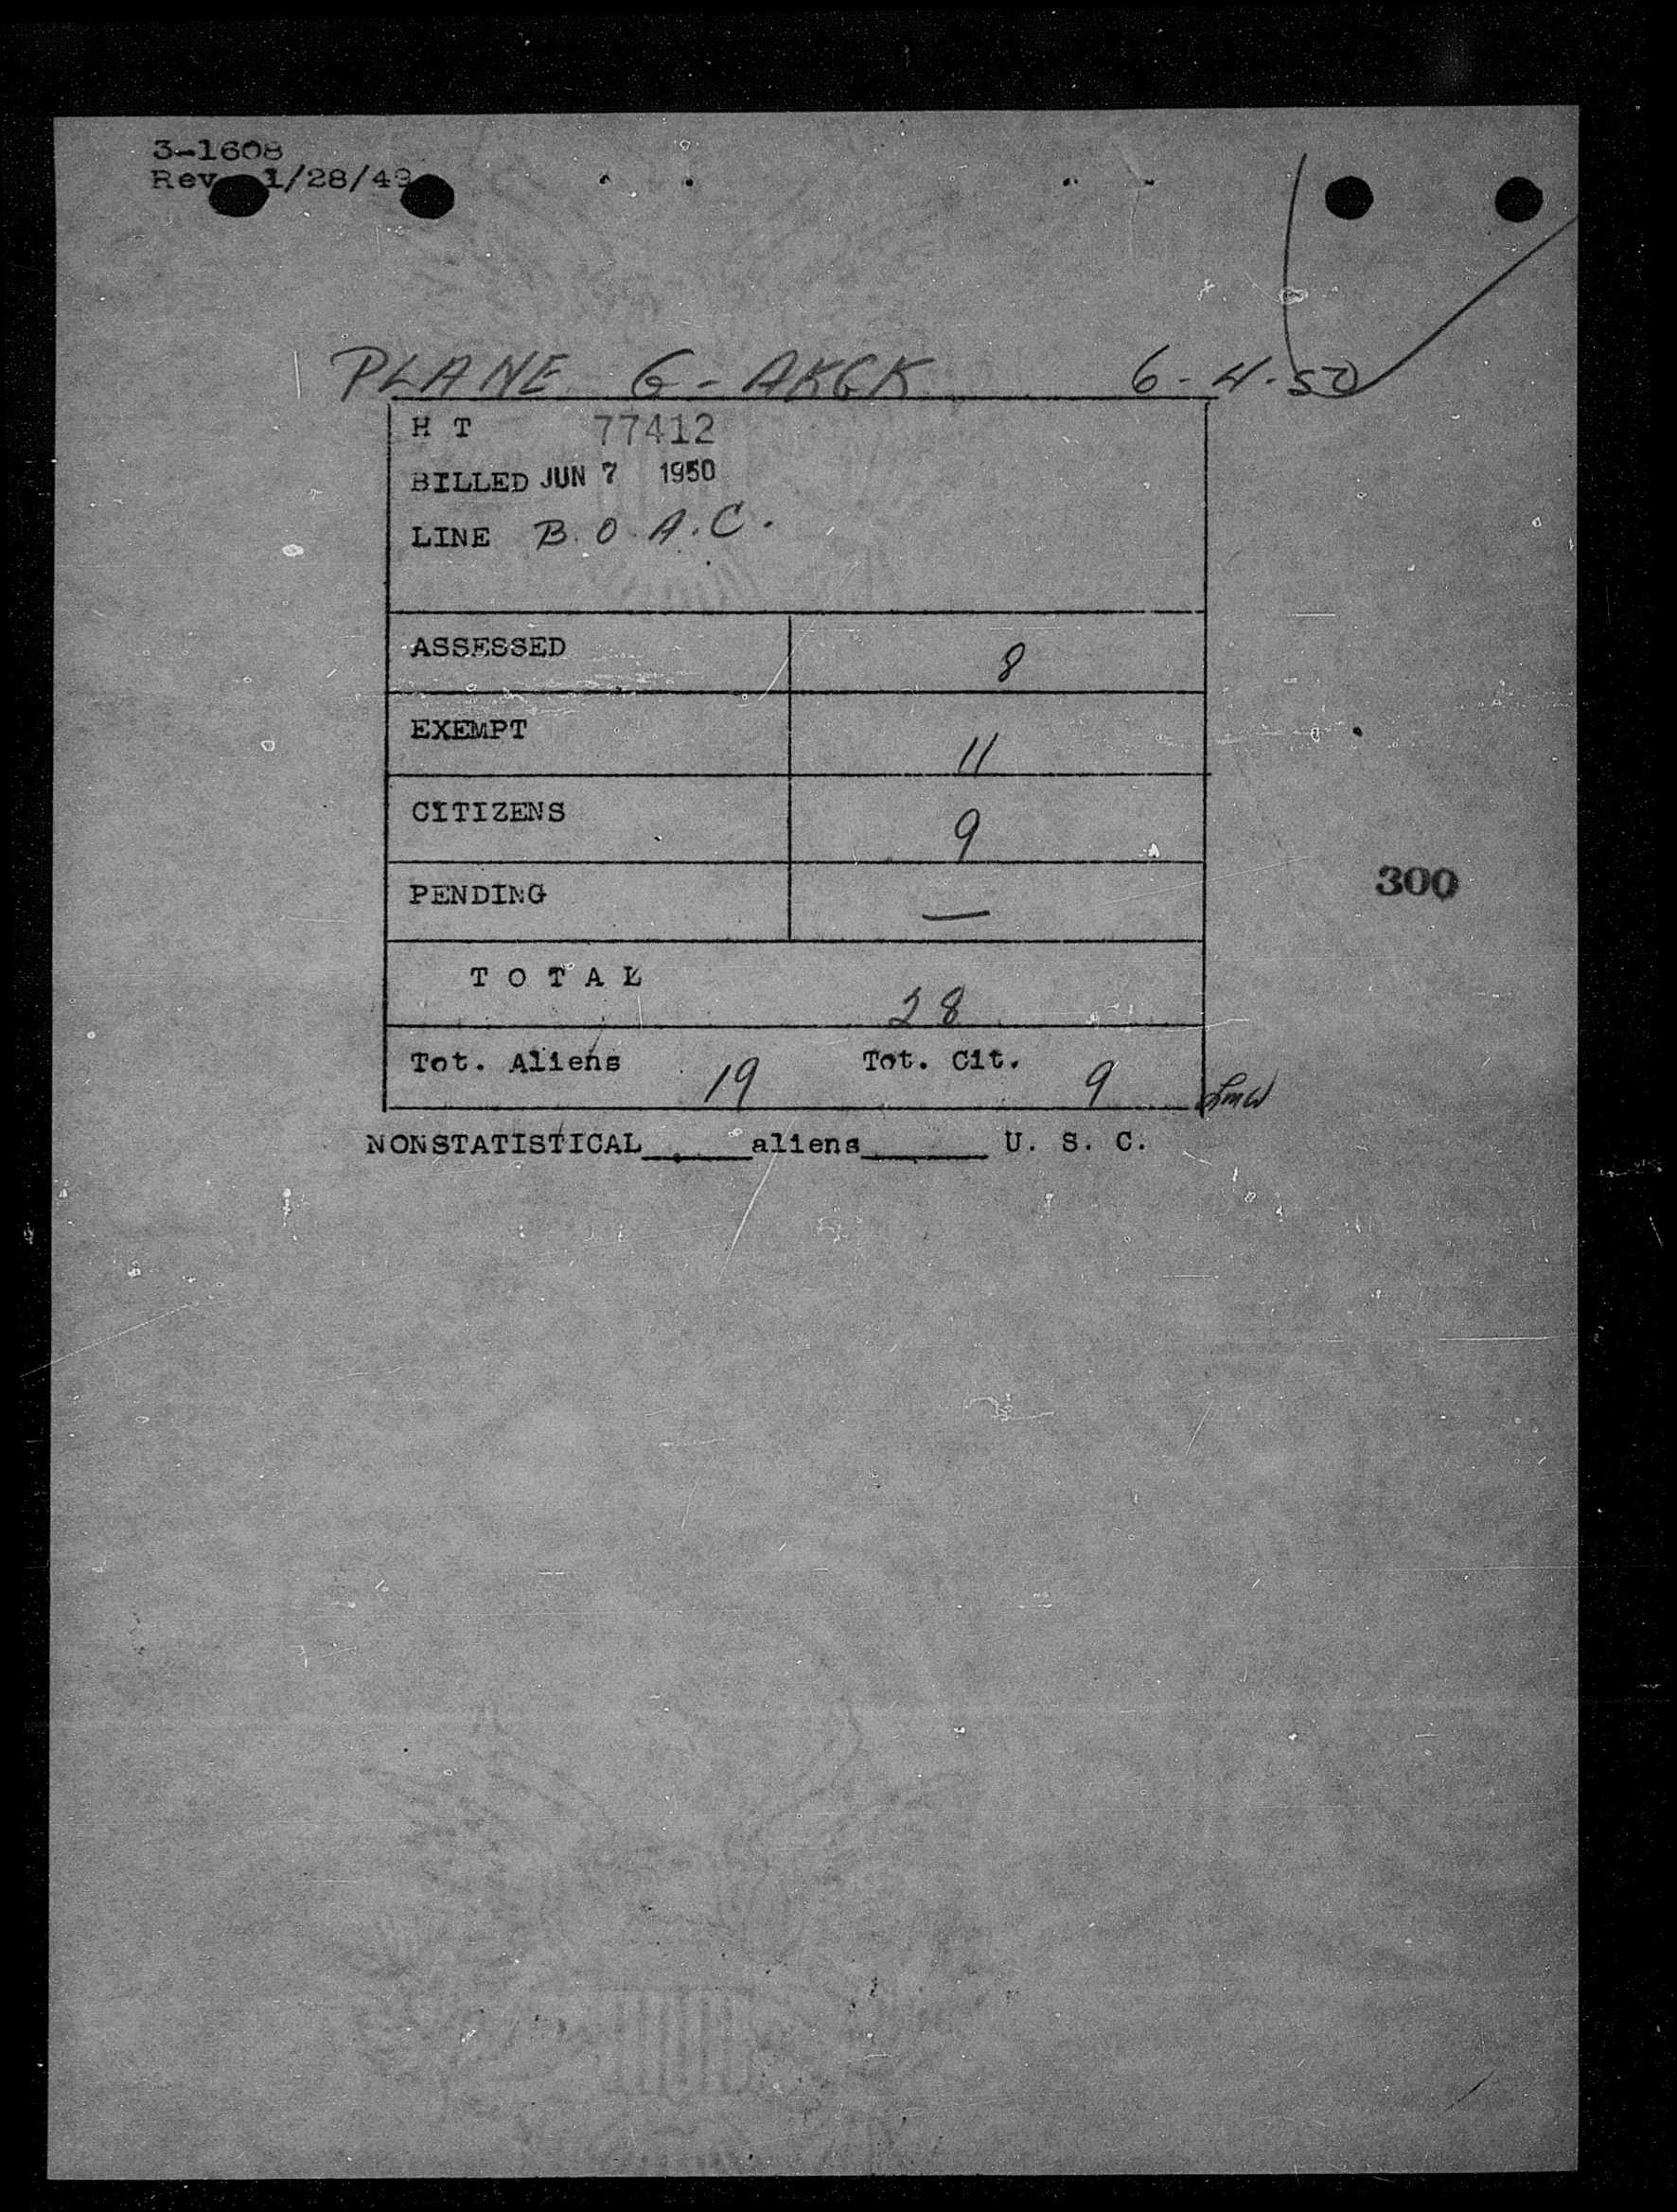 3-1608
Rev. 1/28/49
PLANE G-AKGK 6-4-50
H T 77412
BILLED JUN 7 1950
LINE B.O.A.C.
ASSESSED 8
EXEMPT 11
CITIZENS 9
PENDING —
300
T O T A L 28
Tot. Aliens 19 Tot. Cit. 9
NONSTATISTICAL______aliens______ U. S. C.